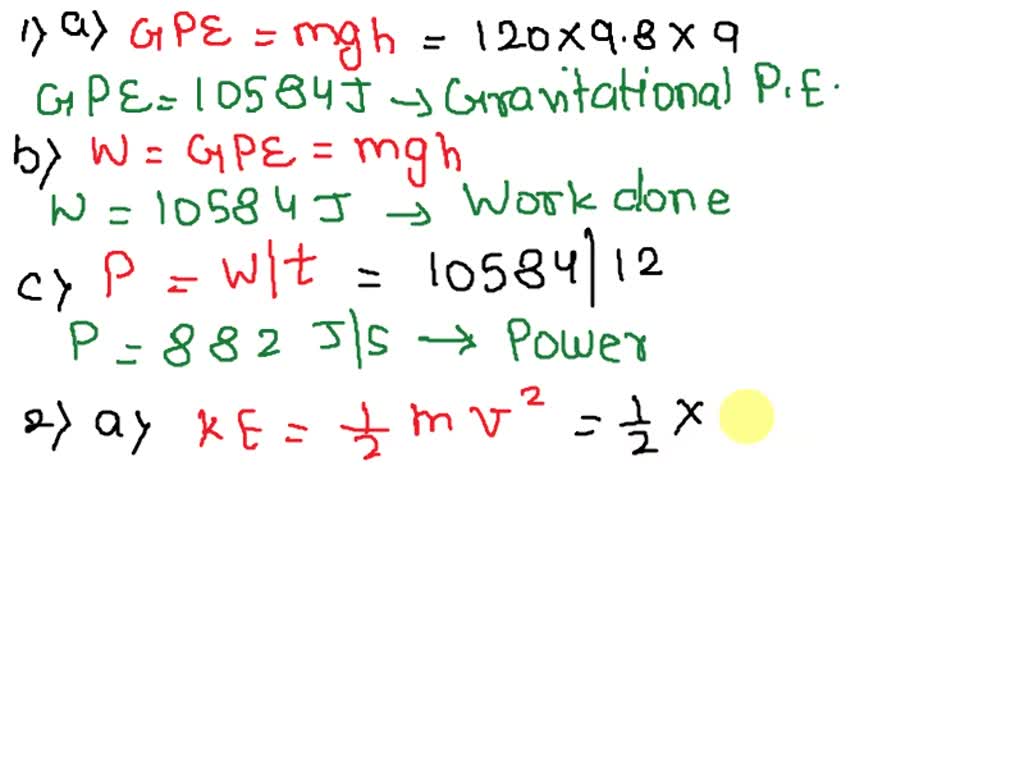 1) a) GPE = mgh = 120 × 9.8 × 9
GPE = 10584J → Gravitational P.E.
b) W = GPE = mgh
W = 10584 J → Work done
c) P = W/t = 10584/12
P = 882 J/s → Power
2) a) KE = 1/2 m v² = 1/2 ×